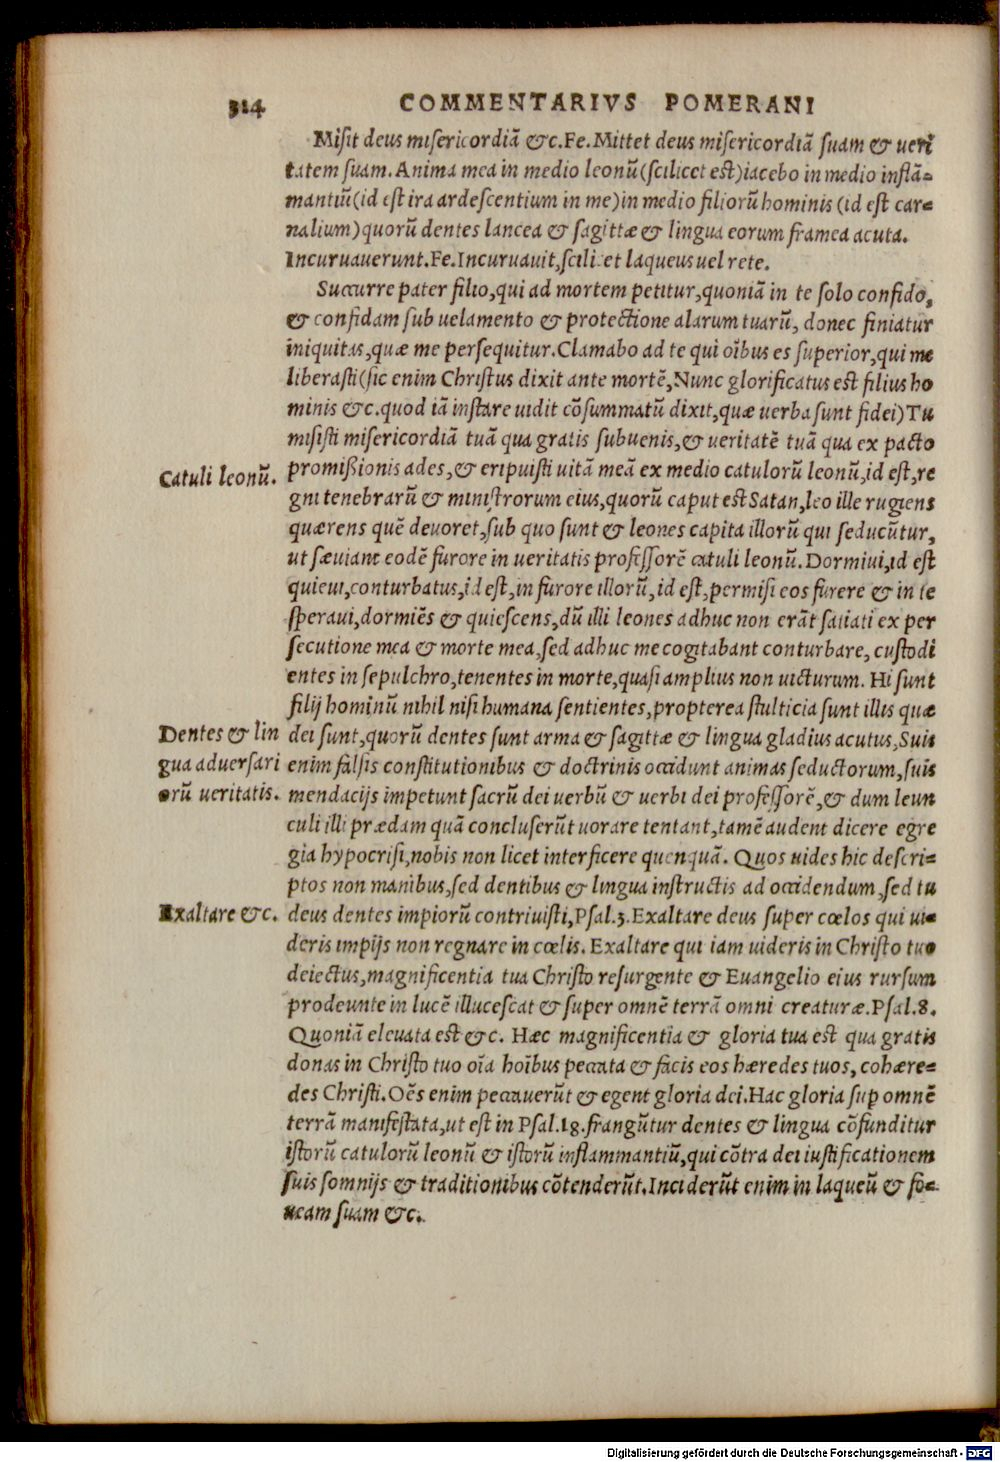 314 COMMENTARIVS POMERANI
Misit deus misericordiã &c.Fe.Mittet deus misericordiã suam & ueri
tatem suam.Anima mea in medio leonũ(scilicet est)iacebo in medio inflã=
mantiũ(id est ira ardescentium in me)in medio filiorũ hominis (id est car=
nalium)quorũ dentes lancea & sagittæ & lingua eorum framea acuta.
Incuruauerunt.Fe.Incuruauit,scilicet laqueus uel rete.
Succurre pater filio,qui ad mortem petitur,quoniã in te solo confido,
& confidam sub uelamento & protectione alarum tuarũ, donec finiatur
iniquitas,quæ me persequitur.Clamabo ad te qui oĩbus es superior,qui me
liberasti(sic enim Christus dixit ante mortẽ,Nunc glorificatus est filius ho
minis &c.quod iã instare uidit cõsummatũ dixit,quæ uerba sunt fidei)Tu
misisti misericordiã tuã qua gratis subuenis,& ueritatẽ tuã qua ex pacto
Catuli leonũ. promißionis ades,& eripuisti uitã meã ex medio catulorũ leonũ,id est,re
gni tenebrarũ & ministrorum eius,quorũ caput est Satan,leo ille rugiens
quærens quẽ deuoret,sub quo sunt & leones capita illorũ qui seducũtur,
ut sæuiant eodẽ furore in ueritatis professorẽ catuli leonũ.Dormiui,id est
quieui,conturbatus,id est,in furore illorũ,id est,permisi eos furere & in te
speraui,dormiẽs & quiescens,dũ illi leones adhuc non erãt satiati ex per
secutione mea & morte mea,sed adhuc me cogitabant conturbare, custodi
entes in sepulchro,tenentes in morte,quasi amplius non uicturum. Hi sunt
filij hominũ nihil nisi humana sentientes,propterea stulticia sunt illis quæ
Dentes & lin dei sunt,quorũ dentes sunt arma & sagittæ & lingua gladius acutus,Suis
gua aduersari enim falsis constitutionibus & doctrinis occidunt animas seductorum,suis
orũ ueritatis. mendacijs impetunt sacrũ dei uerbũ & uerbi dei professorẽ,& dum leun
culi illi prædam quã concluserũt uorare tentant,tamẽ audent dicere egre
gia hypocrisi,nobis non licet interficere quenquã. Quos uides hic descri=
ptos non manibus,sed dentibus & lingua instructis ad occidendum,sed tu
Exaltare &c. deus dentes impiorũ contriuisti,Psal.3.Exaltare deus super cœlos qui ui=
deris impijs non regnare in cœlis. Exaltare qui iam uideris in Christo tuo
deiectus,magnificentia tua Christo resurgente & Euangelio eius rursum
prodeunte in lucẽ illucescat & super omnẽ terrã omni creaturæ.Psal.8.
Quoniã eleuata est &c. Hæc magnificentia & gloria tua est qua gratis
donas in Christo tuo oĩa hoĩbus peccata & facis eos hæredes tuos, cohære=
des Christi.Oẽs enim peccauerũt & egent gloria dei.Hac gloria sup omnẽ
terrã manifestata,ut est in Psal.18.frangũtur dentes & lingua cõfunditur
istorũ catulorũ leonũ & istorũ inflammantiũ,qui cõtra dei iustificationem
suis somnijs & traditionibus cõtenderũt.Inciderũt enim in laqueũ & fo=
ueam suam &c.
Digitalisierung gefördert durch die Deutsche Forschungsgemeinschaft - DFG